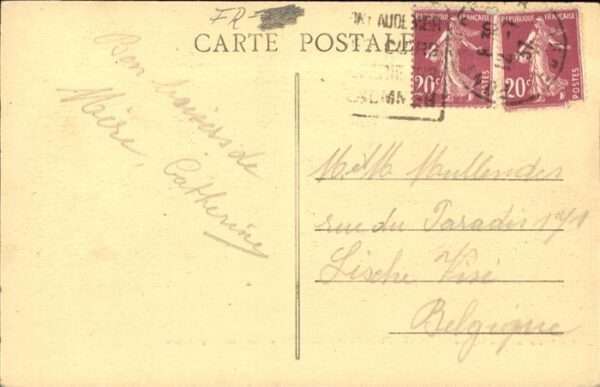 FR-
CARTE POSTALE
RÉPUBLIQUE FRANÇAISE
20c
POSTES
RÉPUBLIQUE FRANÇAISE
20c
POSTES
Bon baisers de
Mère, Catherine
M et M Mullendes
rue du Paradis
Lische Visé
Belgique